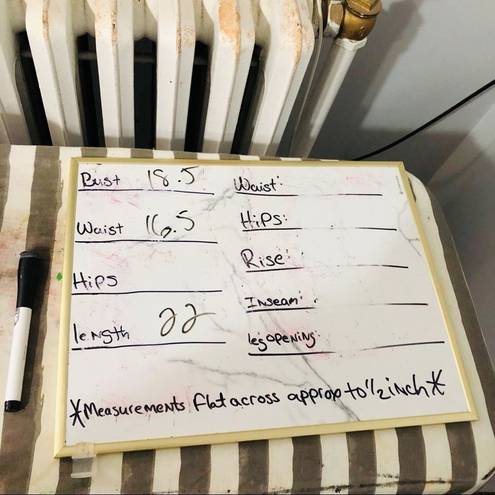 Bust 18.5
Waist 16.5
Hips
length 22
Waist:
Hips:
Rise:
Inseam:
legopening:
*Measurements flat across approp to 1/2 inch*